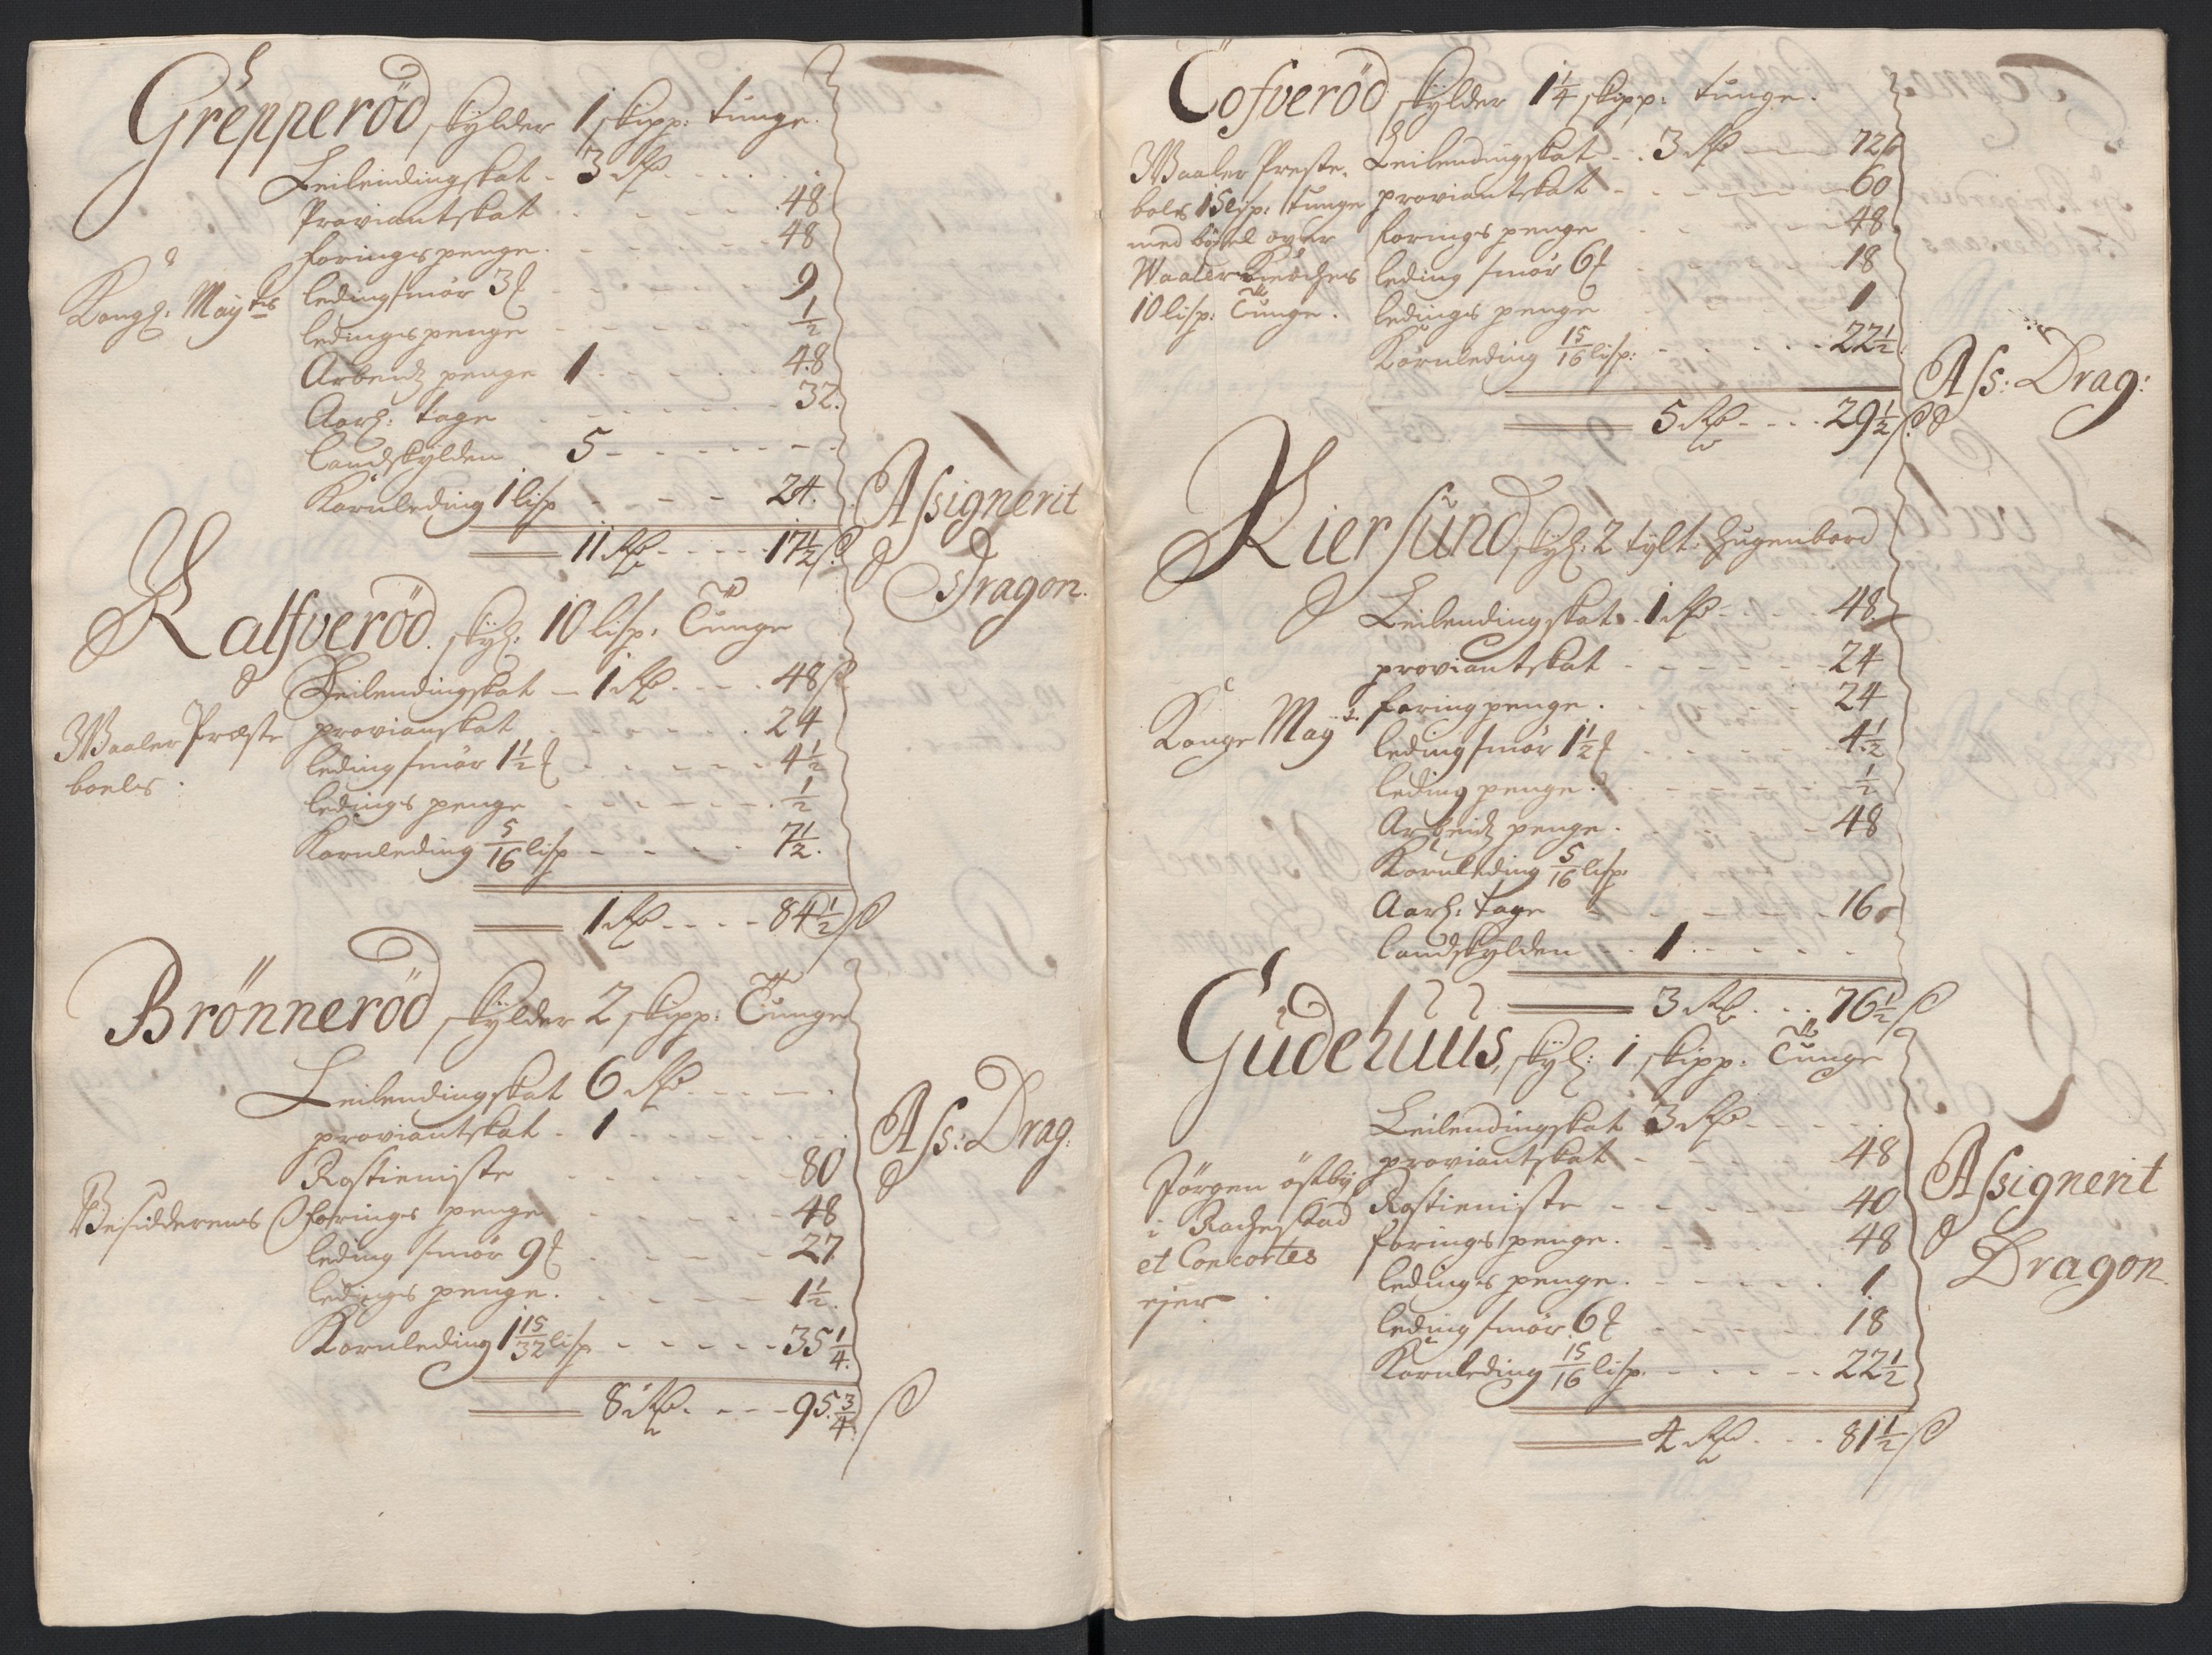 Grepperöd skylder 1 skipp: tunge.
Leilendingskat - 3 Rdr
Proviantskat - - - - 48
foringspenge - - - - 48
Kongl: Mayts leding smör 3 - - - - 9
ledingspenge - - - - ½
Arbeidz penge 1 - - - 48
Aarl: tage - - - - 32.
Landskylden - 5 - - - -
Kornleding 1 lisp - - - 24.
11 Rdr - - - 17½ s
Assignerit
Dragon.
Kalfveröd. skyl: 10 lisp: Tunge
Leilendingskat - 1 Rdr - - 48 s
Waaler Præste
boels
provianskat - - - - 24
leding smör 1½ - - - - 4½
ledings penge - - - - ½
Kornleding 5/16 lisp - - - - 7½.
1 Rdr - - - 84½ s
Brönneröd skylder 2 skipp: Tunge
Leilendingskat 6 Rdr - - -
proviantskat - 1 - - - -
Rostieniste - - - - 80
Besidderens forings penge - - - - 48
leding smör 9 - - - - 27
ledings penge. - - - - 1½.
Kornleding 1 15/32 lisp - - - - 35¼.
8 Rdr. - - - 95¾ s
Ass: Drag:
Tofveröd skylder 1¼ skipp: tunge.
Waaler Preste-
bols 15 lisp: tunge
med böxel over
Waaler Kirches
10 lisp: Tunge.
Leilendingskat - 3 Rdr - - 72 s
proviantskat - - - - 60
forings penge - - - - 48
leding smör 6 - - - - 18
ledings penge - - - - 1
Kornleding 15/16 lisp: - - - - 22½
5 Rdr - - - 29½ s
Ass: Drag:
Kiersund skyl: 2 tylt. Hugenbord
Leilendingskat - 1 Rdr - - 48.
proviantskat - - - - 24
Konge May t. foring penge. - - - 24
leding smör 1½ - - - - 4½
leding penge. - - - - ½
Arbeidz penge. - - - - 48
Kornleding 5/16 lisp:
Aarl: tage - - - - 16
Landskylden - - 1 - - - -
3 Rdr - - - 76½ s
Gudehuus, skyl: 1 skipp: Tunge
Leilendingskat 3 Rdr - - -
proviantskat - - - - 48
Jörgen östby
i Rachestad
et Concortes
ejer
Rostieniste - - - - 40
forings penge. - - - - 48
ledings penge. - - - - 1
leding smör 6 - - - - 18
Kornleding 15/16 lisp. - - - - 22½
4 Rdr - - - 81½ s
Assignerit
Dragon.